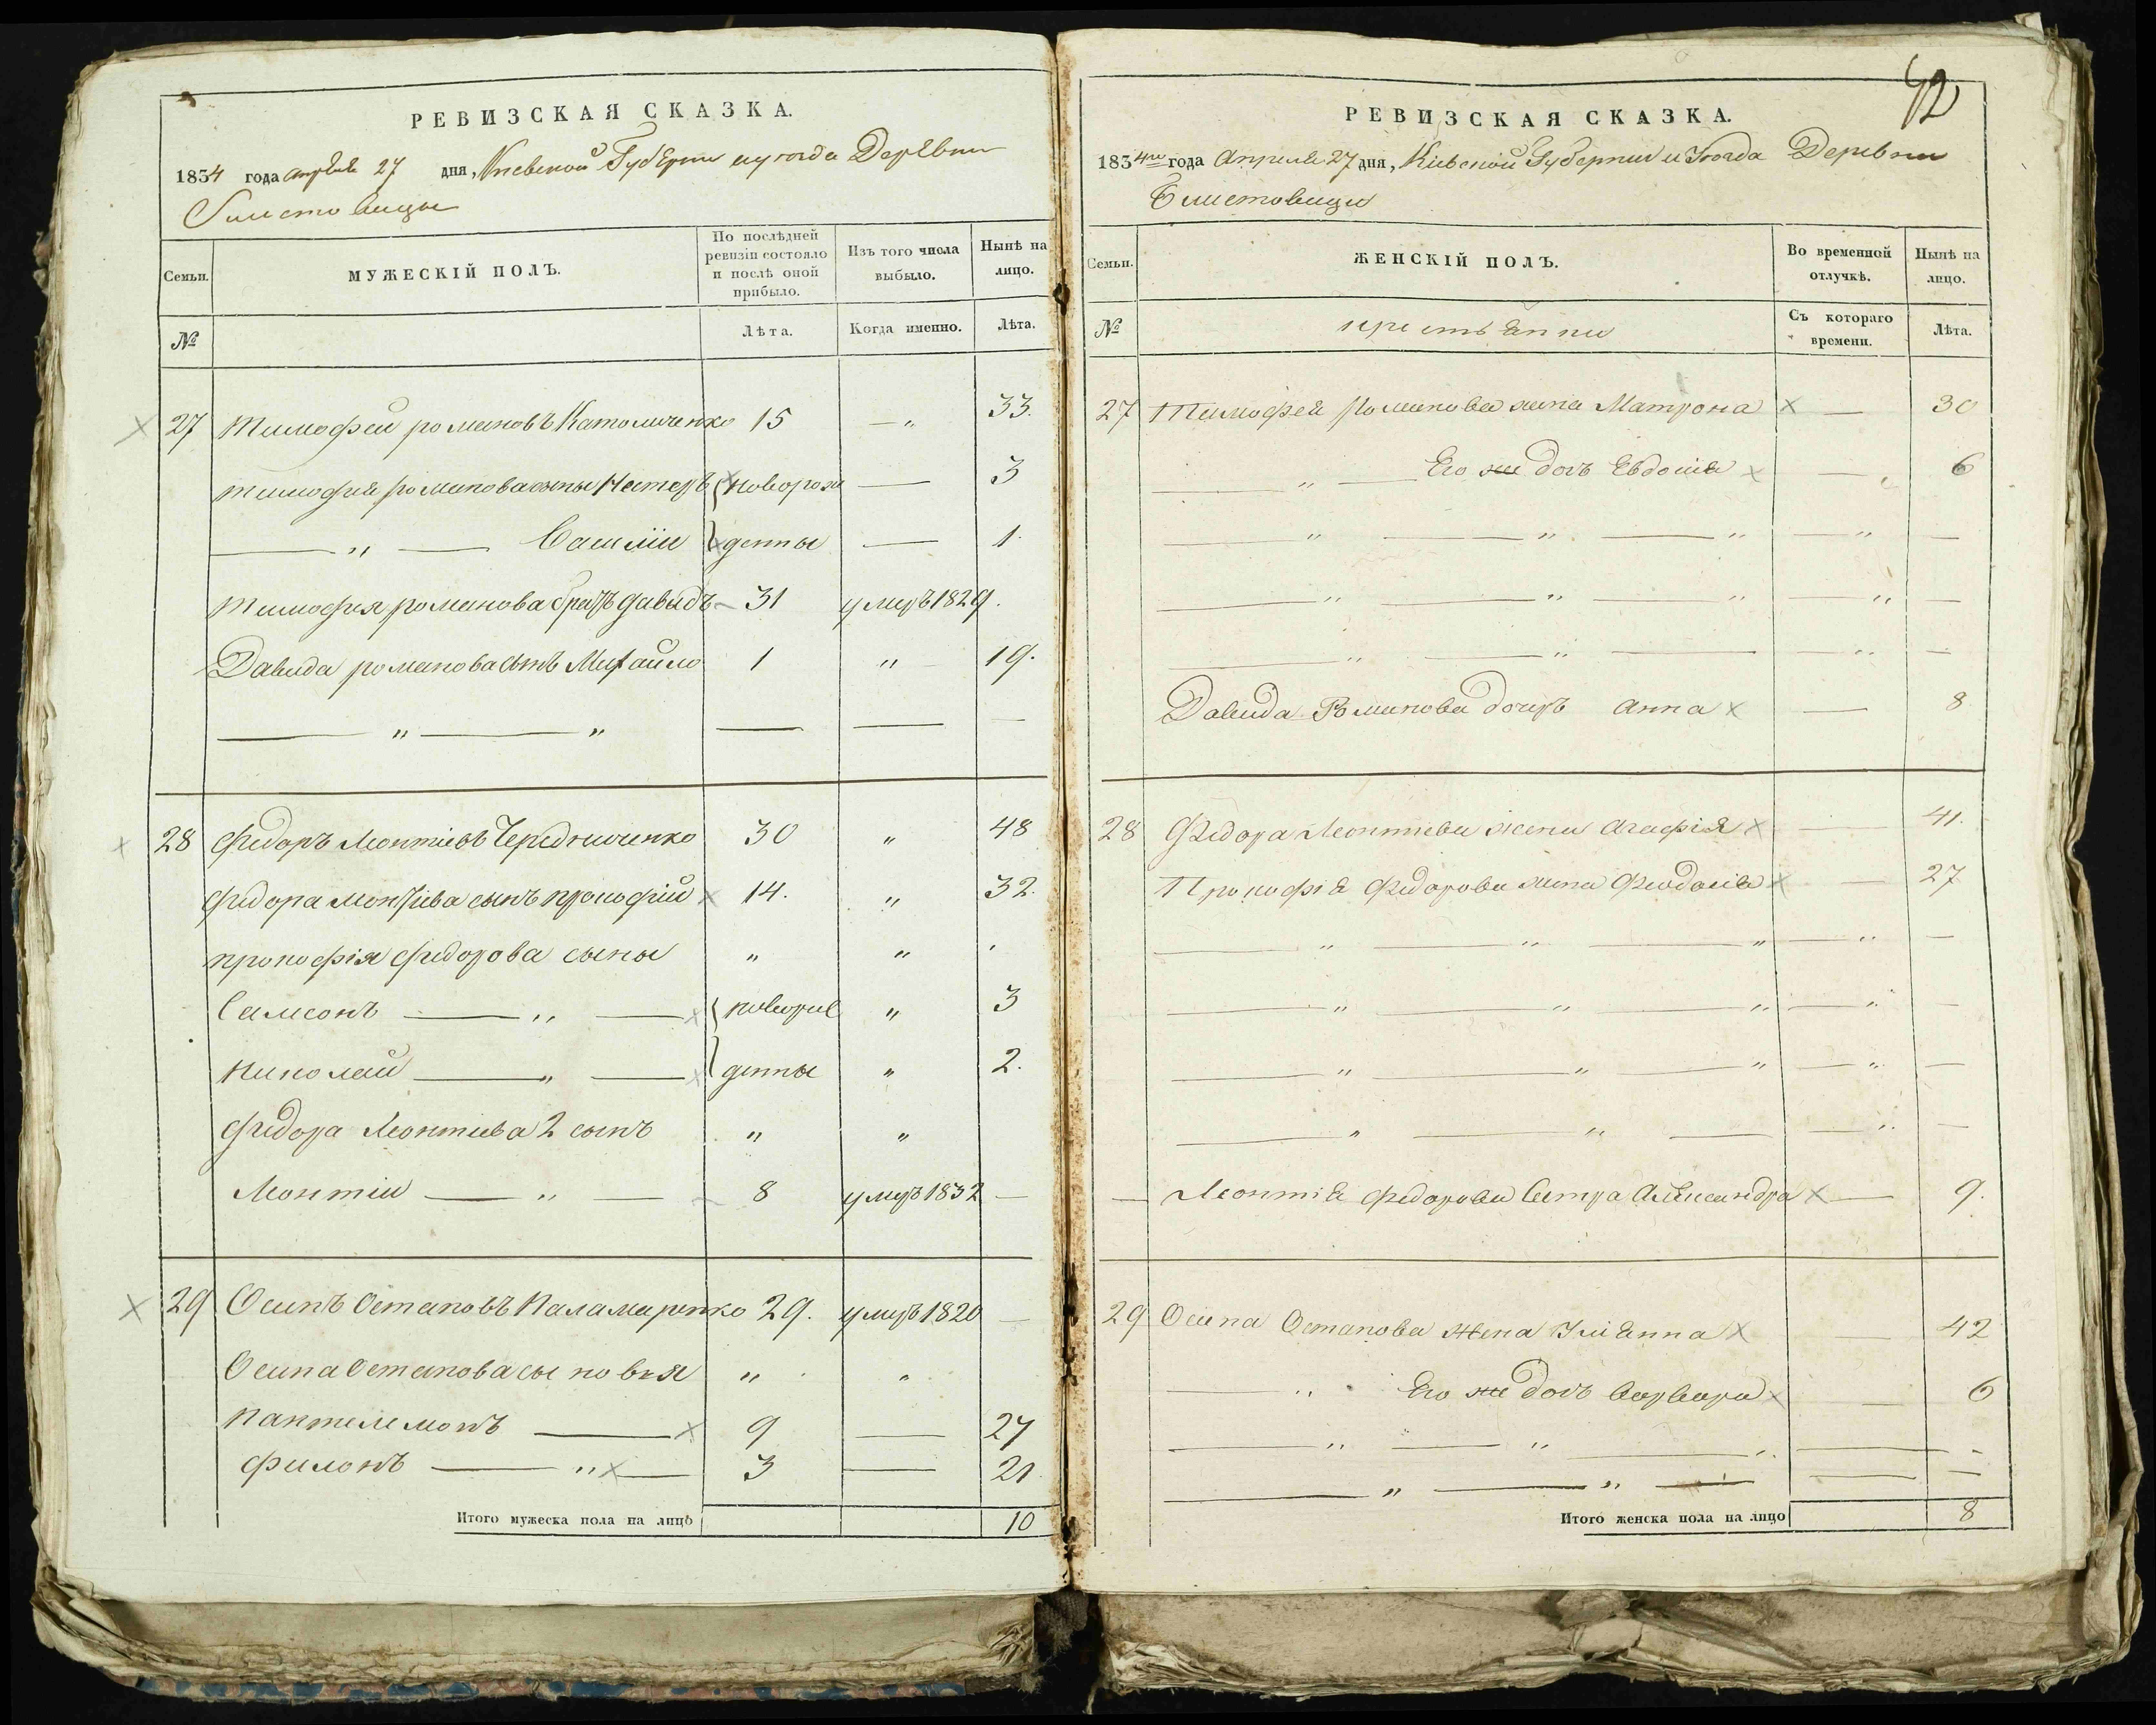 РЕВИЗСКАЯ СКАЗКА.
1834 года апреля 27 дня, Киевской Губерни иуезда Деревни
Блистовицы
Семьи. МУЖЕСКІЙ ПОЛЪ. По послѣдней ревизіи состояло и послѣ оной прибыло. Изъ того числа выбыло. Нынѣ на лицо.
№ Лѣта. Когда именно. Лѣта.
27 Тимофей романовъ Катомченко 15 — „ 33.
тимофея романова сыны Нестеръ новорож — 3
— „ — Василій денны — 1.
тимофея романова братъ давыдъ 31 умръ 1829.
Давида романова сынъ Михайло 1 „ 19.
— „ — „ — — —
28 Федоръ Леонтіевъ Чередниченко 30 „ 48
Федора леонтіева сынъ прокофій 14. „ 32.
прокофія Федорова сыны „ „
Самсонъ — „ — новорож „ 3
николай — „ — денны „ 2.
Федора Леонтиева 2 сынъ „ „
Леонтіи — „ — 8 умръ 1832 —
29 Осипъ Остаповъ Паламаренко 29. умръ 1820 —
Осипа Остапова сыновья „ „
пантелемонъ — 9 — 27
филонъ — „ — 3 — 21.
Итого мужеска пола на лицо 10
42
РЕВИЗСКАЯ СКАЗКА.
1834го года Апреля 27 дня, Кіевской Губернии и Уезда Деревни
Блистовици
Семьи. ЖЕНСКІЙ ПОЛЪ. Во временной отлучкѣ. Нынѣ на лицо.
№ крестьянки Съ котораго времени. Лѣта.
27 Тимофея Романова жена Матрона — 30
— „ — Его же дочь Евдокия — 6
— „ — „ — „ — „ —
— „ — „ — „ — „ —
— „ — „ — — „ —
Давида Романова дочеръ анна — 8
28 Федора Леонтиева жена агафія — 41.
Прокофія Федорова жена Феодосия — 27
— „ — „ — „ — „ —
— „ — „ — „ — „ —
— „ — „ — „ — „ —
— „ — „ — — „ —
— Леонтія Федорова Сестра Александра — 9.
29 Осипа Остапова жена Улианна — 42
— „ Его же дочь Варвара — 6
— „ — „ — „ — —
— „ — „ — — —
Итого женска пола на лицо 8